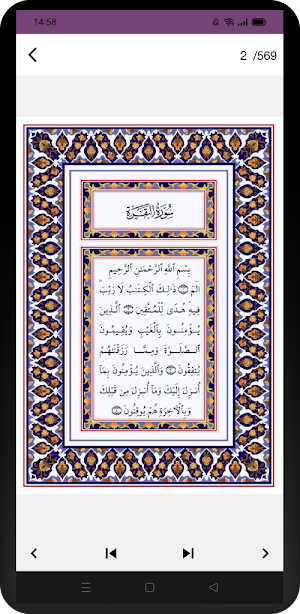 14:58
2 /569
سُورَةُ البَقَرَةِ
بِسْمِ ٱللَّهِ ٱلرَّحْمَٰنِ ٱلرَّحِيمِ
الٓمٓ ۝١ ذَٰلِكَ ٱلْكِتَٰبُ لَا رَيْبَ
فِيهِ هُدًى لِّلْمُتَّقِينَ ۝٢ ٱلَّذِينَ
يُؤْمِنُونَ بِٱلْغَيْبِ وَيُقِيمُونَ
ٱلصَّلَوٰةَ وَمِمَّا رَزَقْنَٰهُمْ
يُنفِقُونَ ۝٣ وَٱلَّذِينَ يُؤْمِنُونَ بِمَآ
أُنزِلَ إِلَيْكَ وَمَآ أُنزِلَ مِن قَبْلِكَ
وَبِٱلْءَاخِرَةِ هُمْ يُوقِنُونَ ۝٤